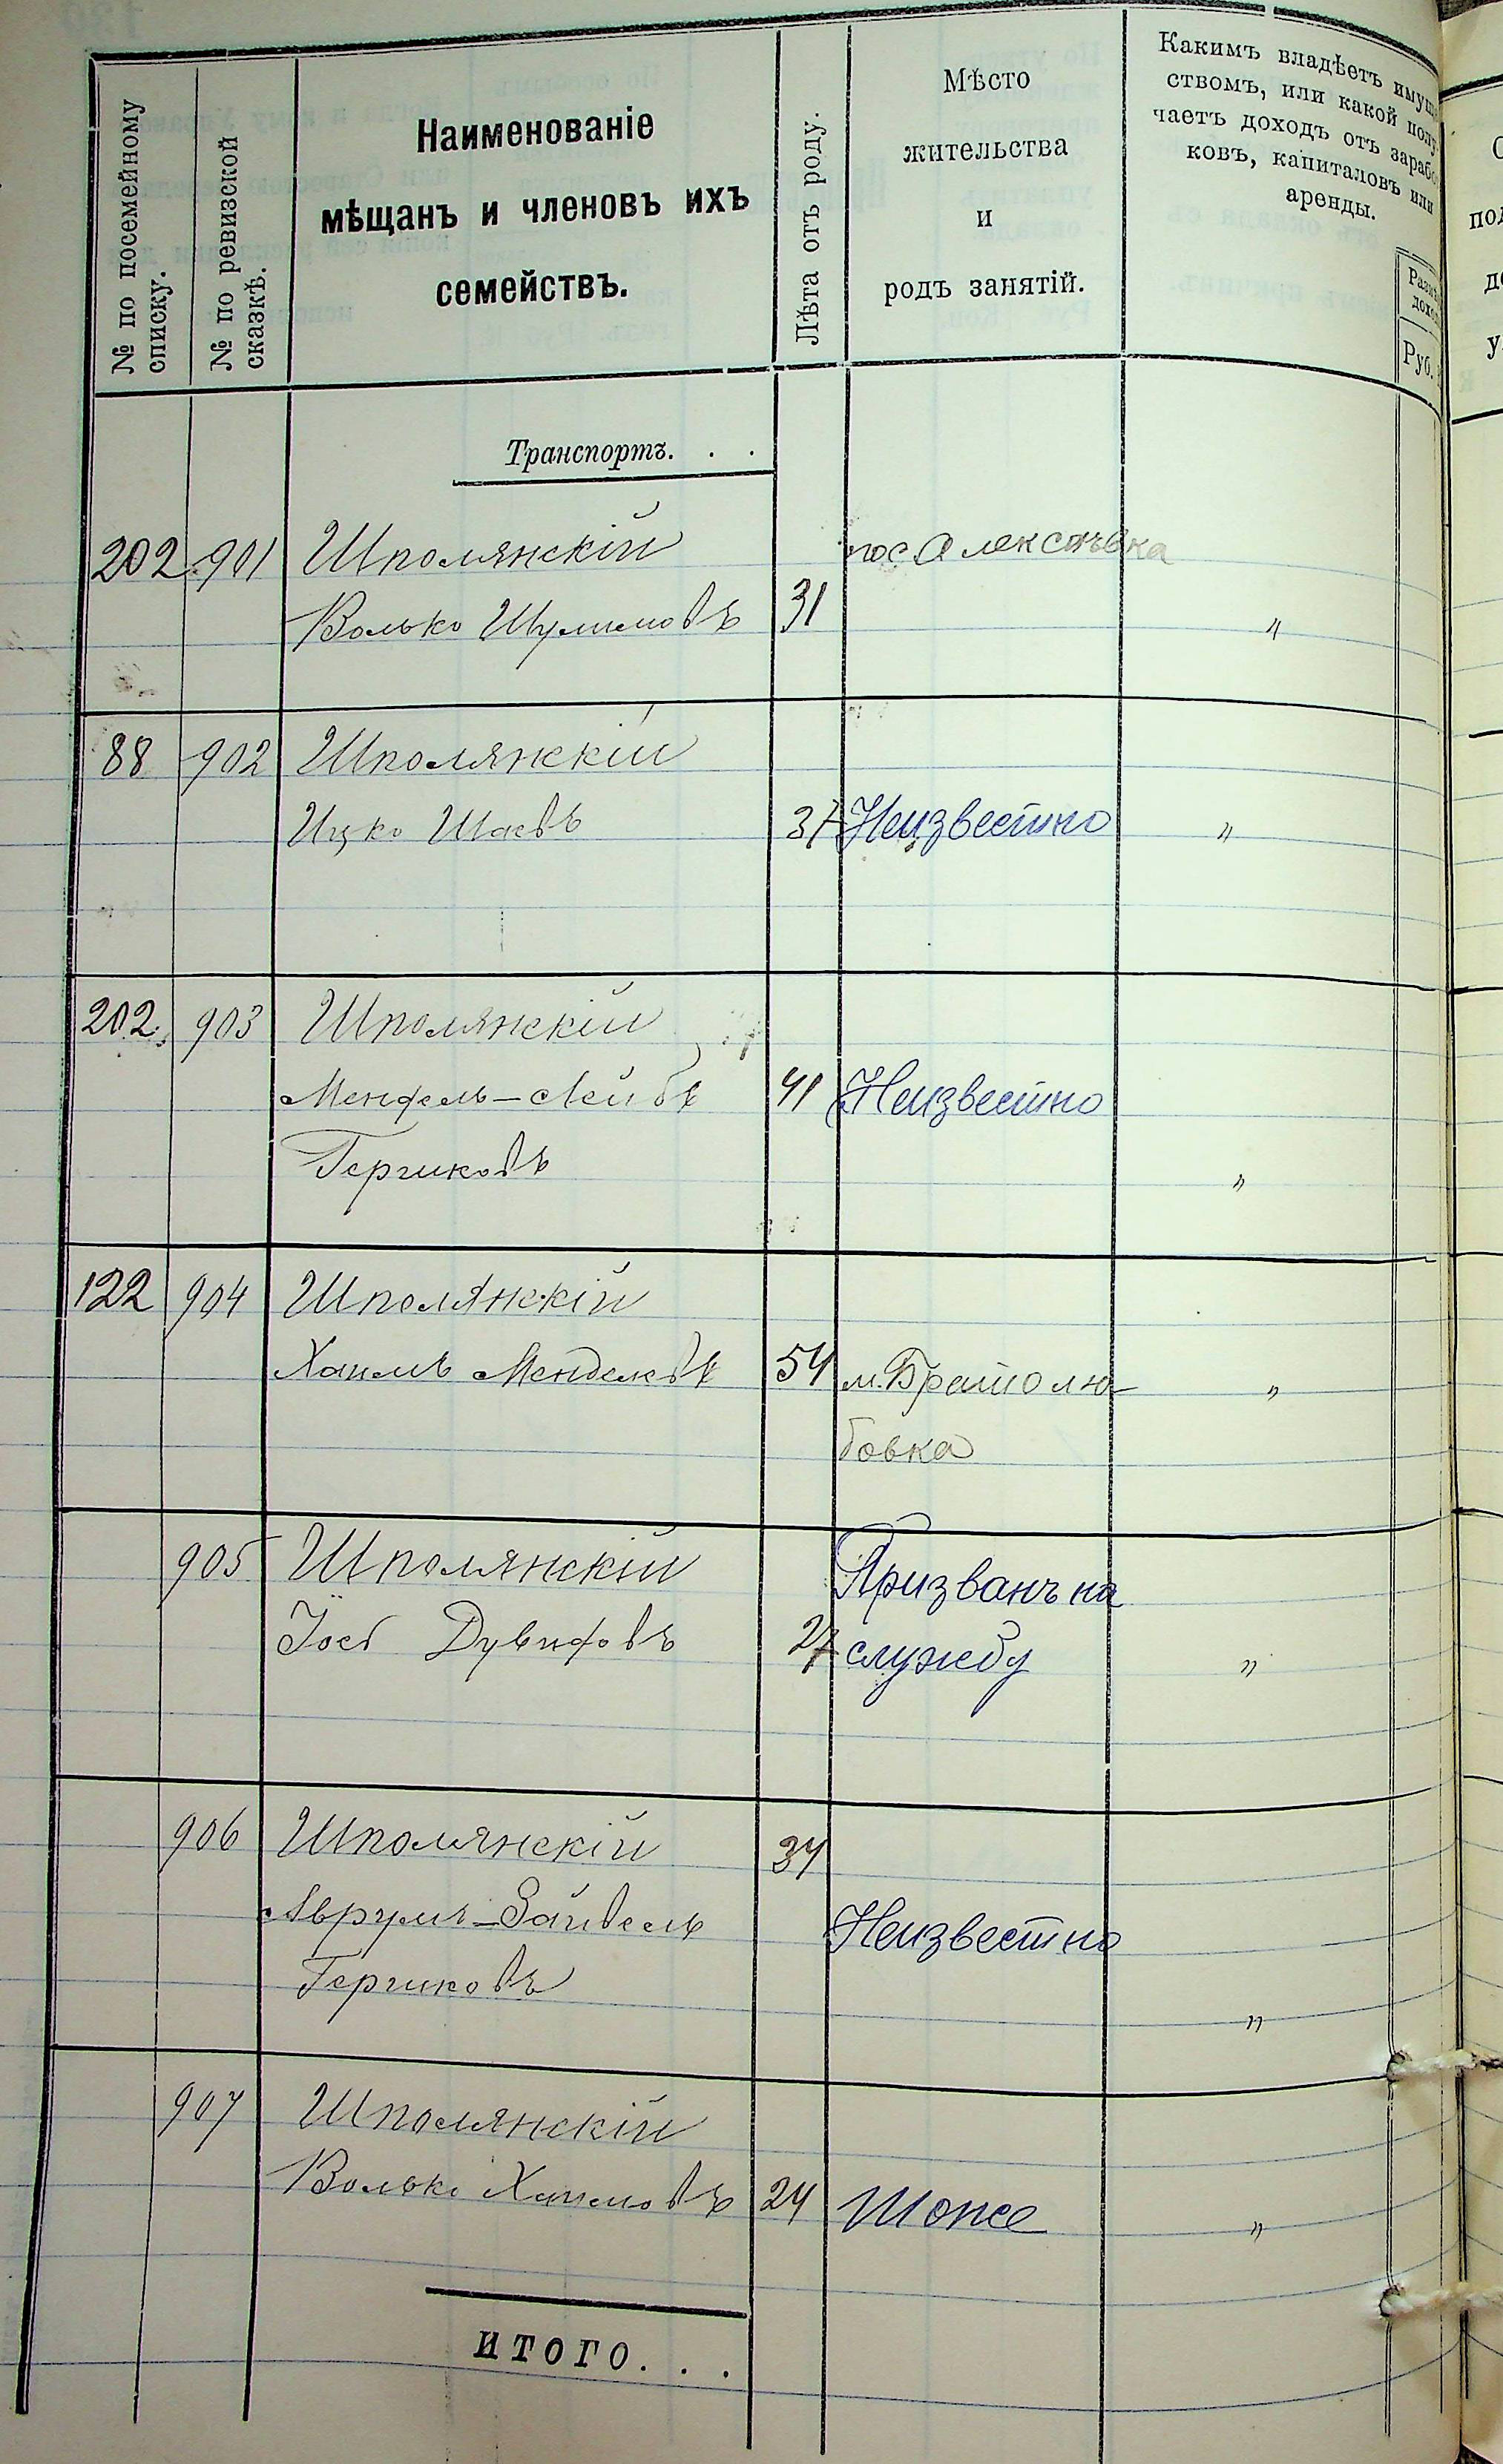 № по посемейному
списку.
№ по ревизской
сказкѣ.
Наименованіе
мѣщанъ и членовъ ихъ
семействъ.
Лѣта отъ роду.
Мѣсто
жительства
и
родъ занятій.
Какимъ владѣетъ имущ
ствомъ, или какой полу
чаетъ доходъ отъ зарабо
ковъ, капиталовъ или
аренды.
Руб.
Транспортъ. . .
202 901 Шполянскій пос Алексѣевка
Волько Шулимовъ 31 "
88 902 Шполянскій
Ицко Шаевъ 37 Неизвестно "
202 903 Шполянскій
Мендель-Лейбъ 41 Неизвестно
Гершковъ "
122 904 Шполянскій
Хаимъ Менделевъ 54 м. Братолю-
бовка "
905 Шполянскій Призванъ на
Іось Дувидовъ 27 службу "
906 Шполянскій 34
Аврумъ-Зайвель Неизвестно
Гершковъ "
907 Шполянскій
Волько Хаимовъ 24 Тоже "
ИТОГО. . .